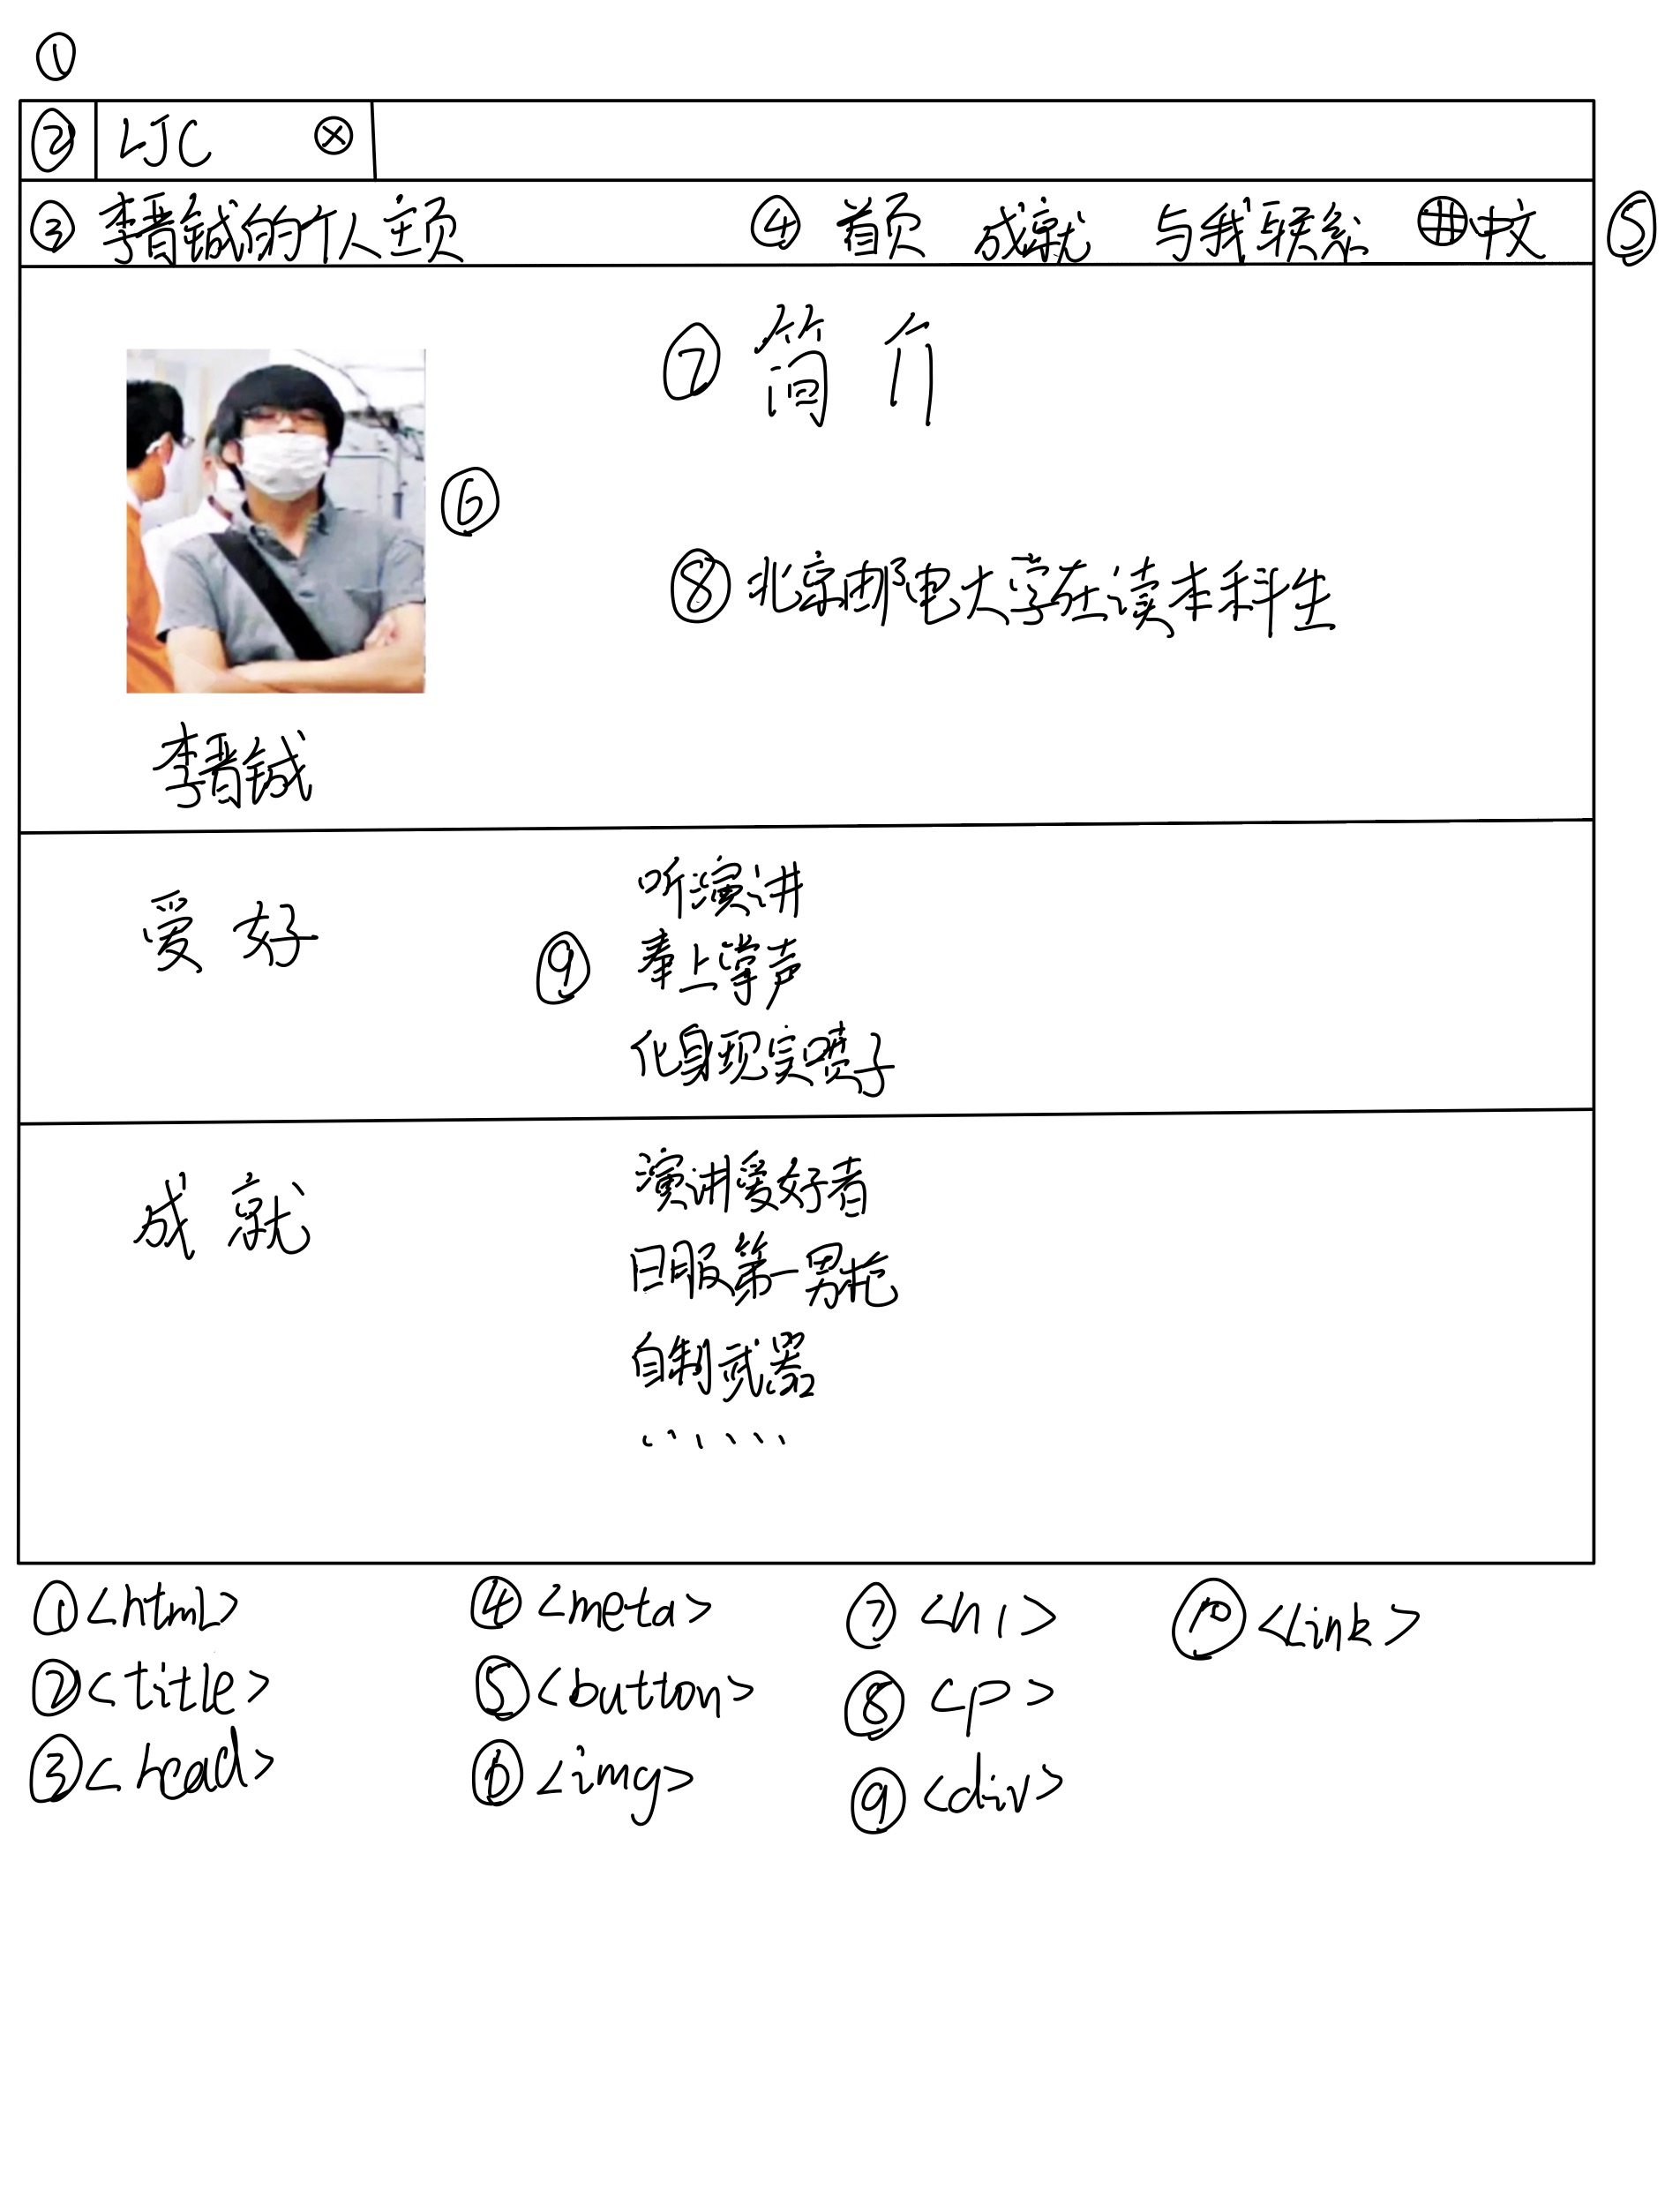 ①
② LJC
③ 李晋铖的个人主页 ④ 首页 成就 与我联系 中文 ⑤
⑦ 简介
⑥
⑧ 北京邮电大学在读本科生
李晋铖
爱好
⑨
听演讲
奉上掌声
化身现实喷子
成就
演讲爱好者
日服第一男枪
自制武器
……
①<html>
②<title>
③<head>
④<meta>
⑤<button>
⑥<img>
⑦<h1>
⑧<p>
⑨<div>
⑩<link>